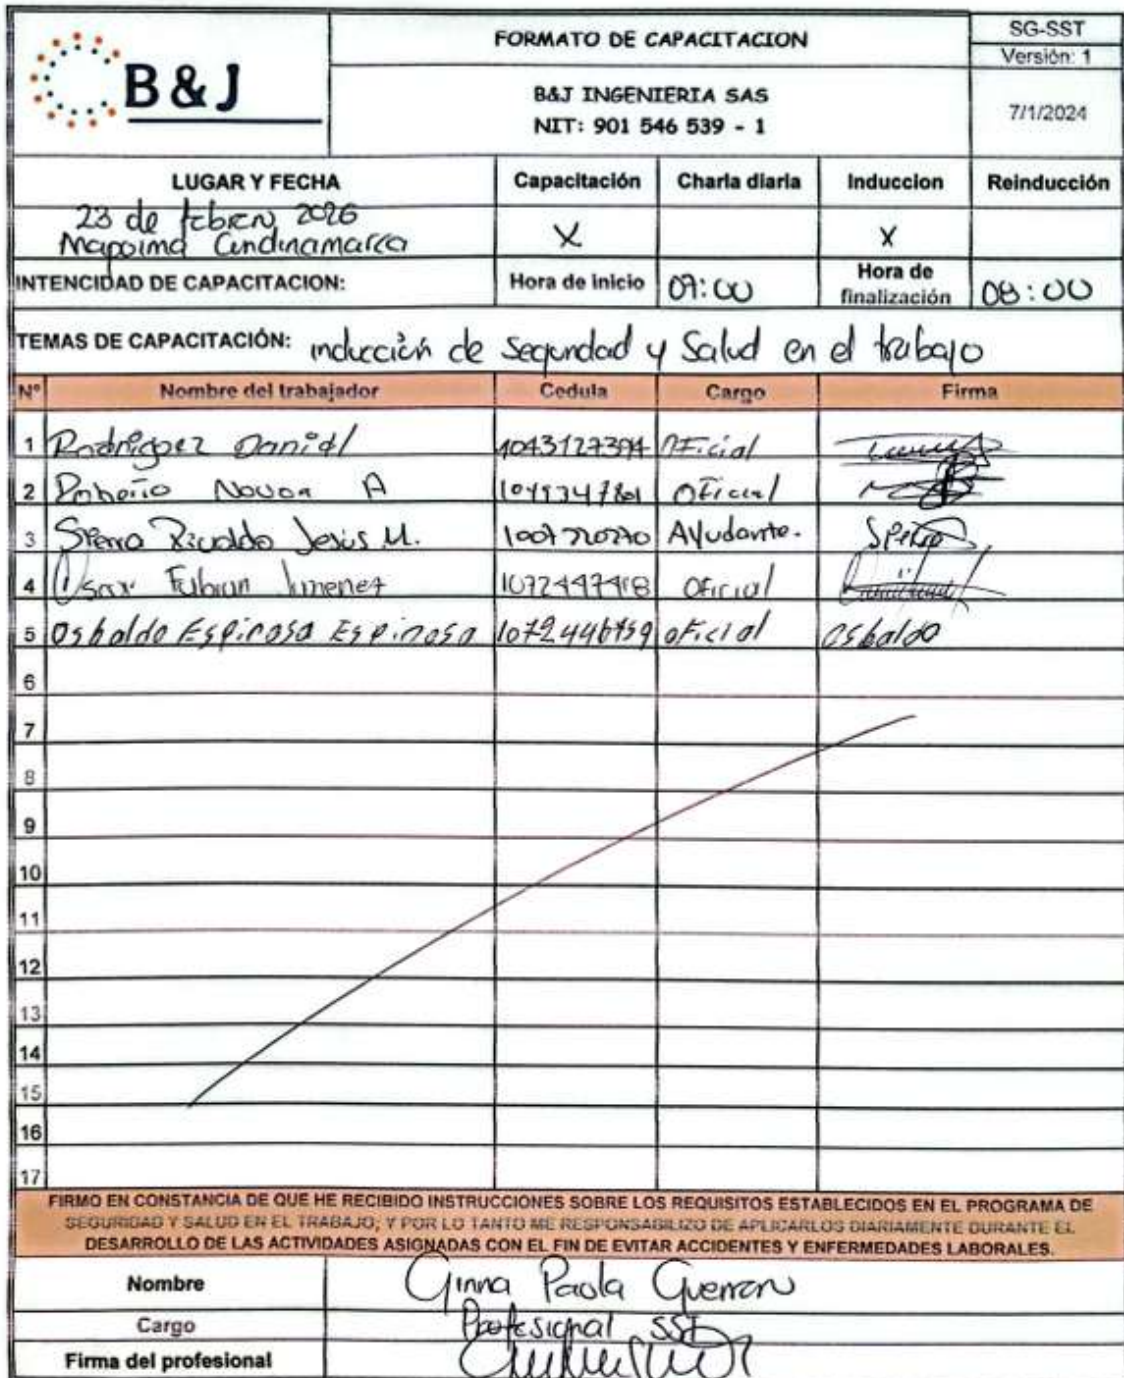 B & J
FORMATO DE CAPACITACION
SG-SST
Versión: 1
B&J INGENIERIA SAS
NIT: 901 546 539 - 1
7/1/2024
LUGAR Y FECHA Capacitación Charla diaria Induccion Reinducción
23 de febrero 2026
Cundinamarca X X
INTENCIDAD DE CAPACITACION: Hora de inicio 07:00 Hora de finalización 08:00
TEMAS DE CAPACITACIÓN: inducción de seguridad y Salud en el trabajo
N° Nombre del trabajador Cedula Cargo Firma
1 Rodriguez Daniel Oficial
2 Novoa A Oficial
3 Jesus M. Ayudante.
4 Fabian Jimenez Oficial
5 Osbaldo Espinosa Espinosa oficial Osbaldo
6
7
8
9
10
11
12
13
14
15
16
17
FIRMO EN CONSTANCIA DE QUE HE RECIBIDO INSTRUCCIONES SOBRE LOS REQUISITOS ESTABLECIDOS EN EL PROGRAMA DE
SEGURIDAD Y SALUD EN EL TRABAJO; Y POR LO TANTO ME RESPONSABILIZO DE APLICARLOS DIARIAMENTE DURANTE EL
DESARROLLO DE LAS ACTIVIDADES ASIGNADAS CON EL FIN DE EVITAR ACCIDENTES Y ENFERMEDADES LABORALES.
Nombre Ginna Paola Guerrero
Cargo Profesional SST
Firma del profesional